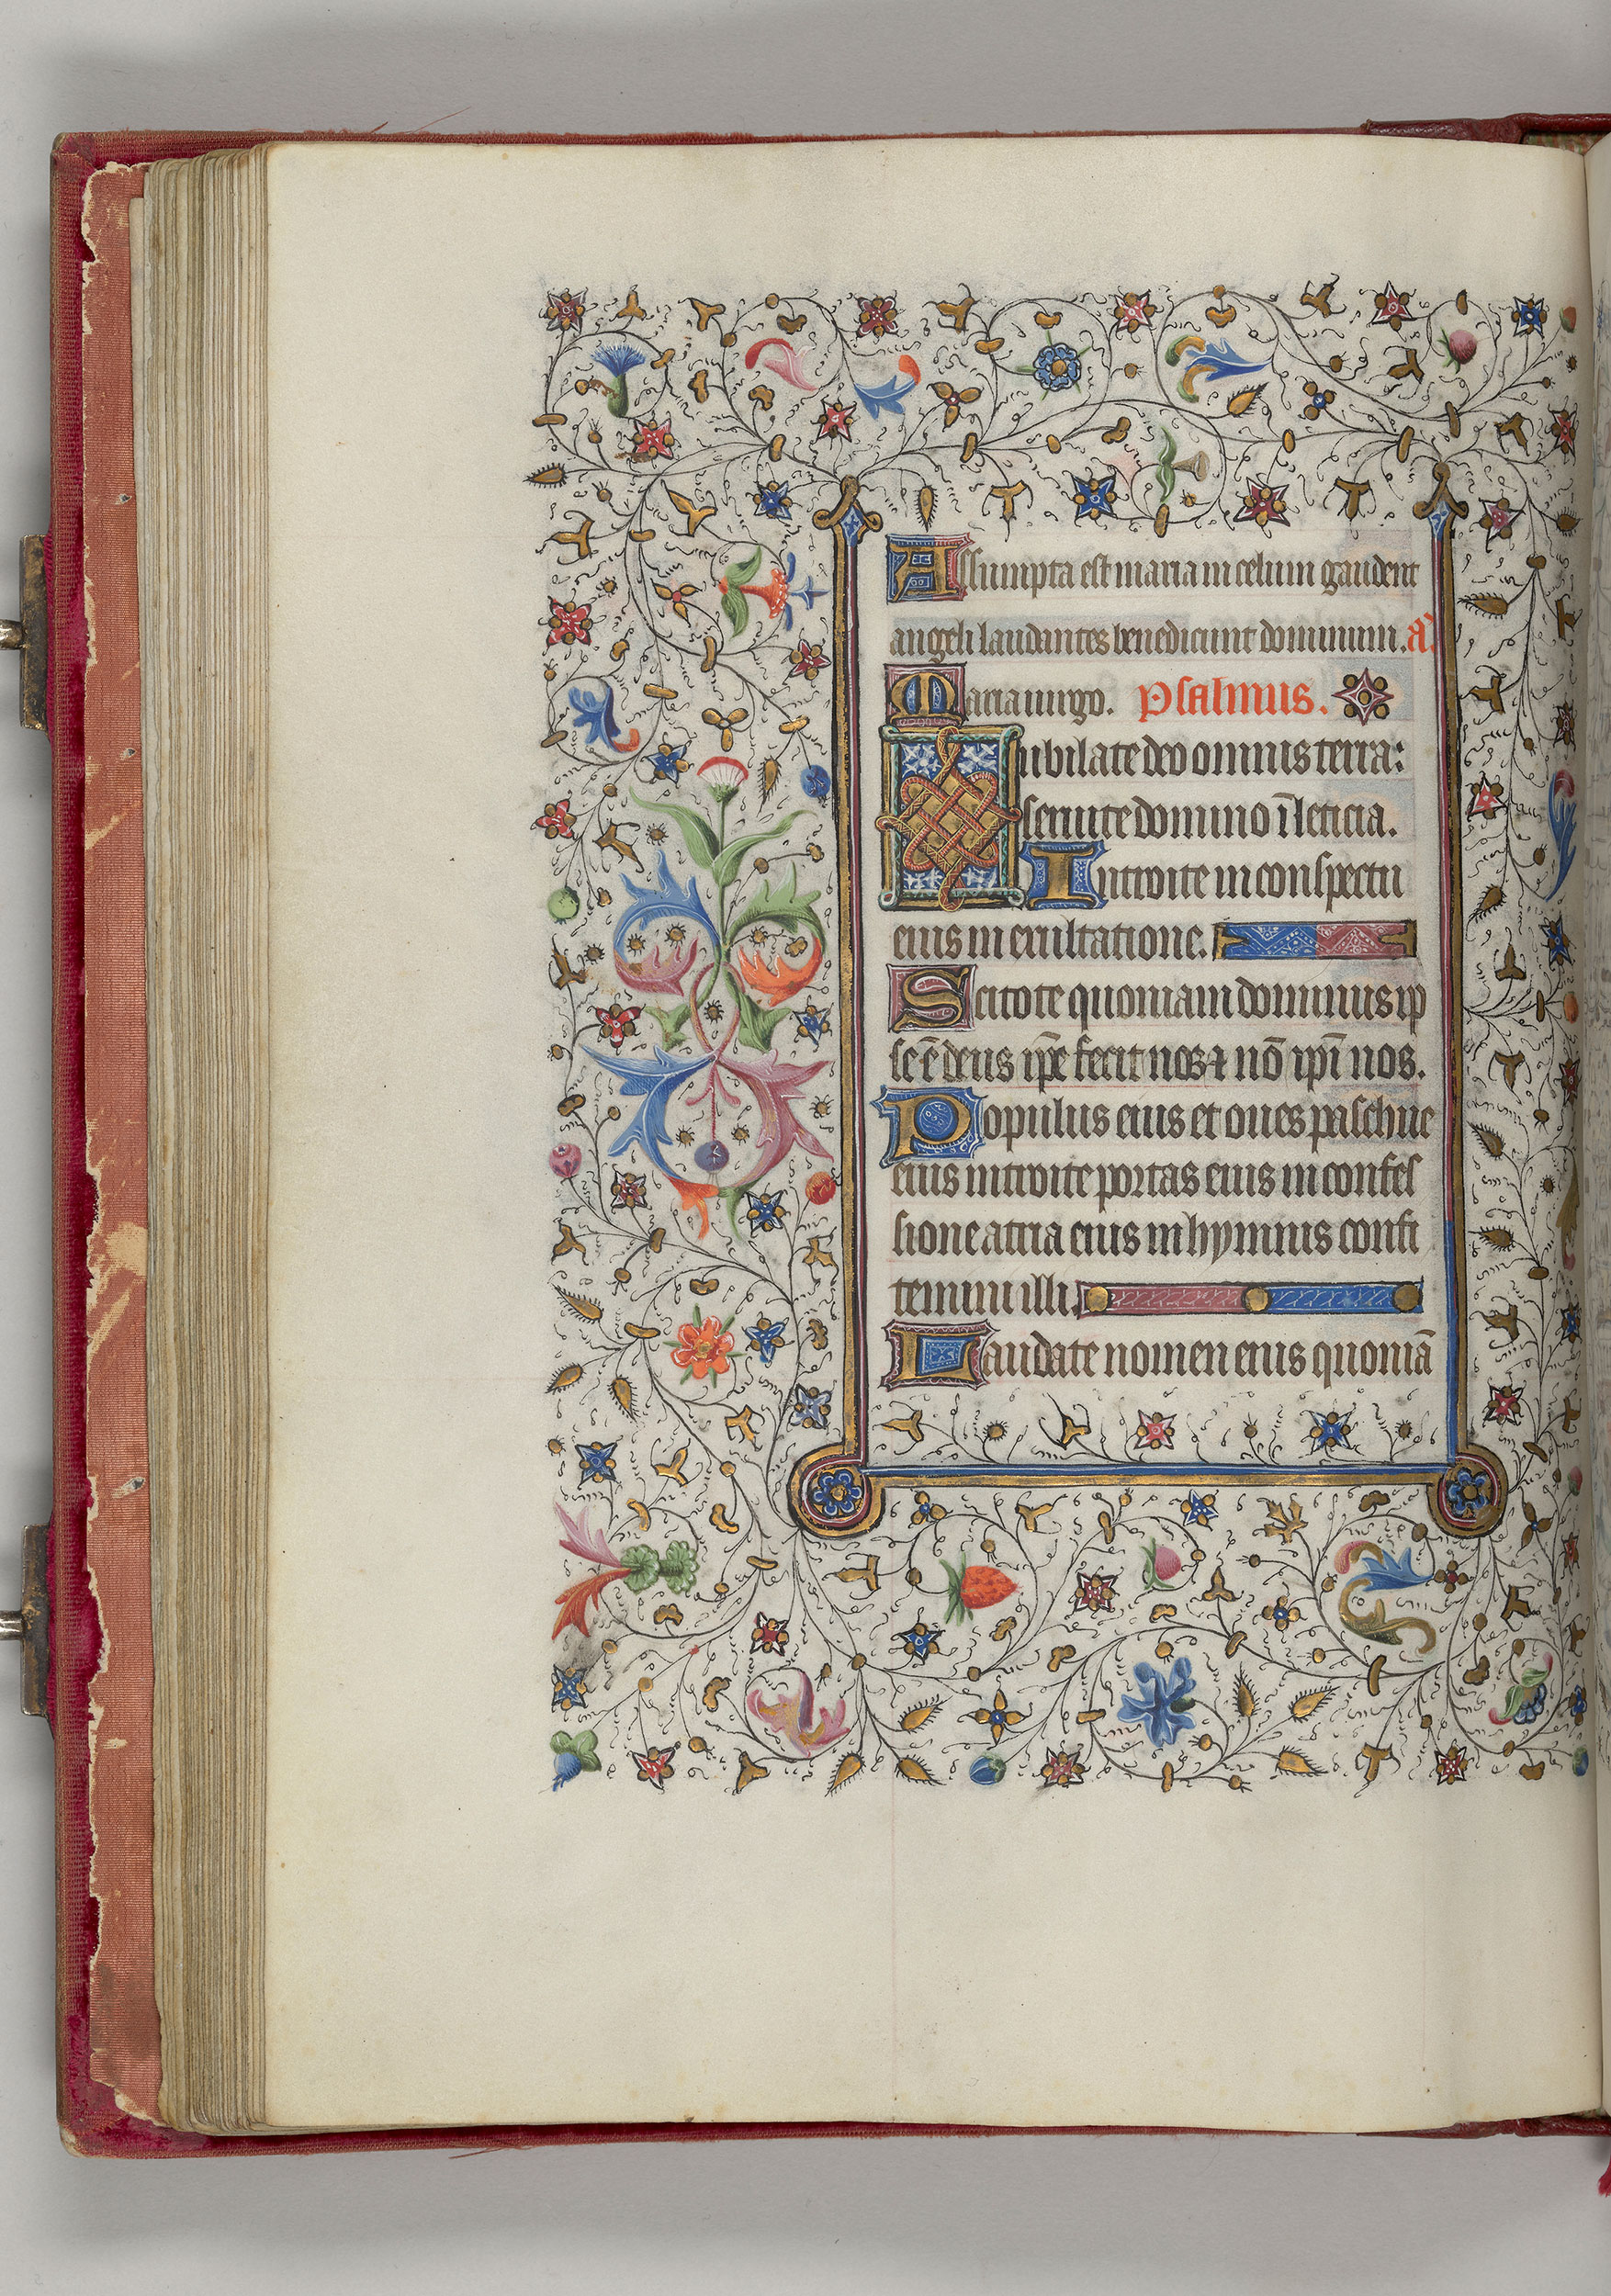 Assumpta est maria in celum gaudent
angeli laudantes benedicunt dominum. a͂.
Maria uirgo. Psalmus.
Iubilate deo omnis terra:
seruite domino ī leticia.
Introite in conspectu
eius in exultatione.
Scitote quoniam dominus ip
se ē deus ip̄e fecit nos ⁊ nō ip̄i nos.
Populus eius et oues paschue
eius introite portas eius in confes
sione atria eius in hymnis confi
temini illi.
Laudate nomen eius quoniā